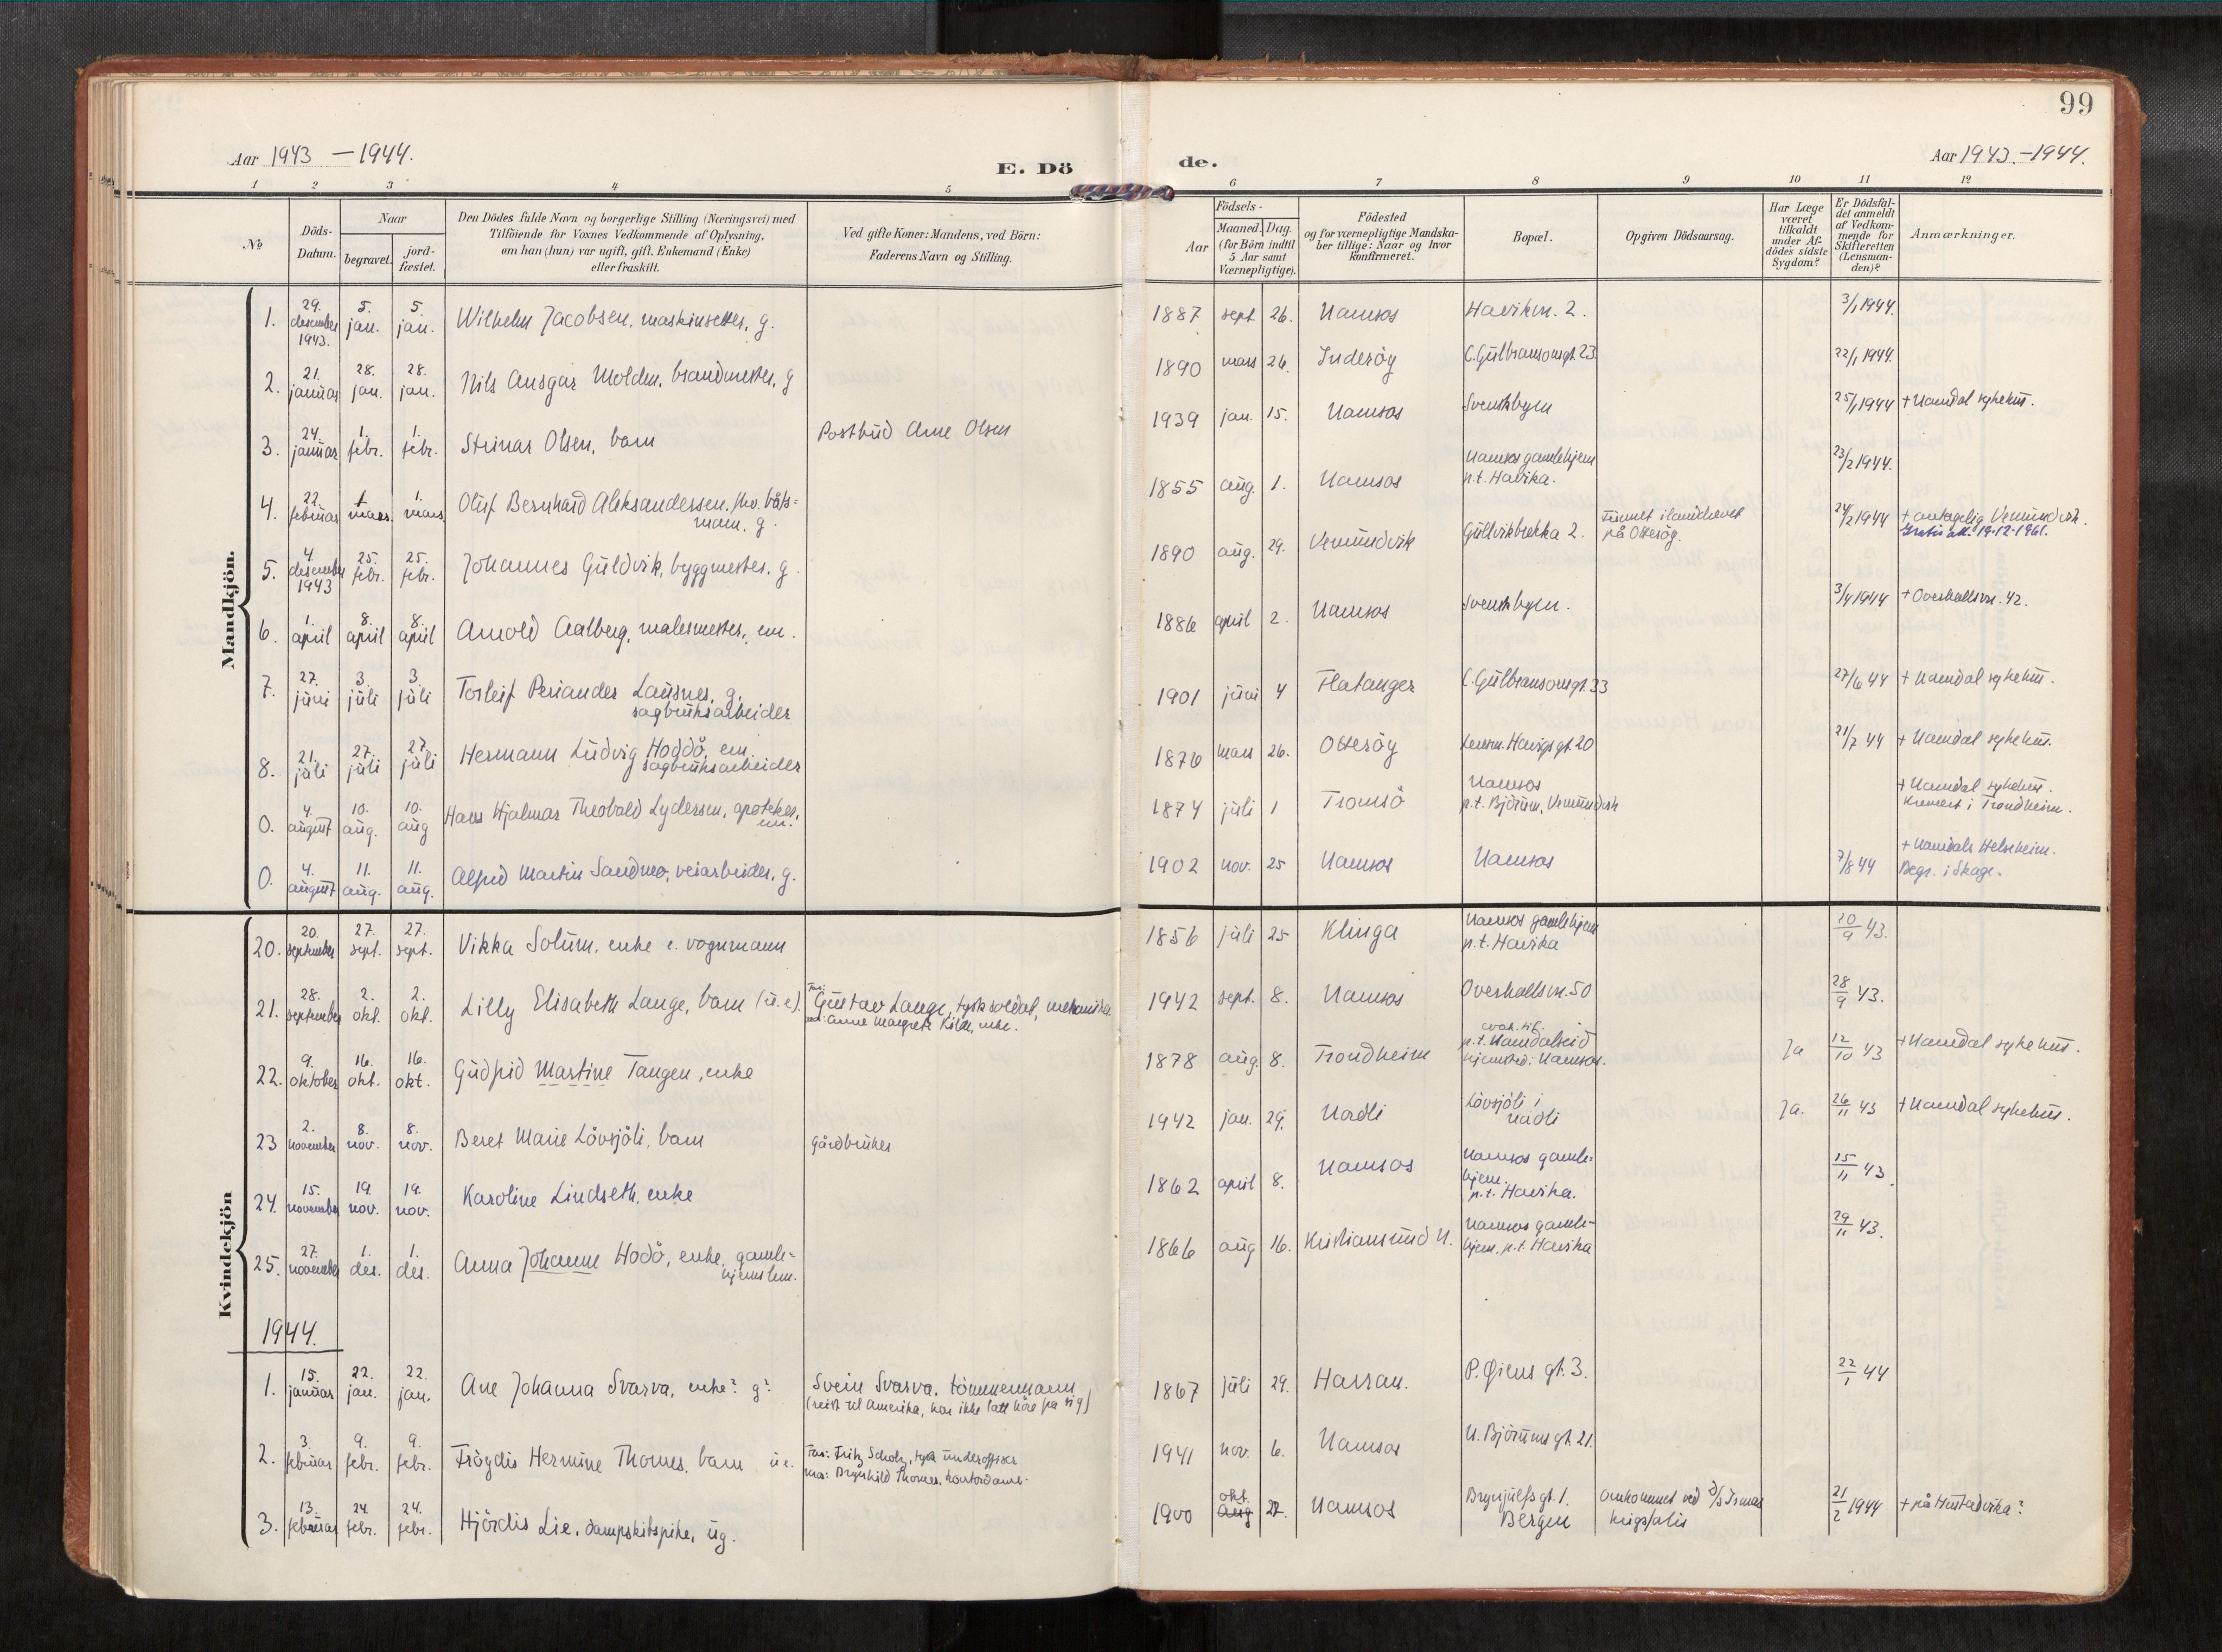 99
Aar 1943 – 1944.
E. Dö
de.
Aar 1943. – 1944.
1 2 3 4 5 6 7 8 9 10 11 12
№
Döds-
Datum.
Naar
begravet.
jord-
fæstet.
Den Dödes fulde Navn og borgerlige Stilling (Næringsvei) med
Tilföiende for Voxnes Vedkommende af Oplysning,
om han (hun) var ugift, gift, Enkemand (Enke)
eller fraskilt.
Ved gifte Koner: Mandens, ved Börn:
Faderens Navn og Stilling.
Födsels-
Aar
Maaned. Dag.
(for Börn indtil
5 Aar samt
Værnepligtige).
Födested
og for værnepligtige Mandska-
ber tillige: Naar og hvor
Konfirmeret.
Bopæl.
Opgiven Dödsaarsag.
Har Læge
været
tilkaldt
under Af-
dödes sidste
Sygdom?
Er Dödsfal-
det anmeldt
af Vedkom-
mende for
Skifteretten
(Lensman-
den)?
Anmærkninger.
Mandkjön.
1. 29. desember 1943. 5. jan. 5. jan. Wilhelm Jacobsen, maskinsetter, g. 1887 sept. 26. Namsos Havikvn. 2. 3/1 1944.
2. 21. januar 28. jan. 28. jan. Nils Ansgar Molden, brandmester, g 1890 mars 26. Inderöy C. Gulbransonsgt. 23 22/1 1944.
3. 24. januar 1. febr. 1. febr. Steinar Olsen, barn Postbud Arne Olsen 1939 jan. 15. Namsos Svenskbyen 25/1 1944 + Namdal sykehus.
4. 22. februar 1. mars. 1. mars. Oluf Bernhard Aleksandersen, fhv. båts=
mann, g. 1855 aug. 1. Namsos Namsos gamlehjem
p.t. Havika. 23/2 1944.
5. 4. desember 1943 25. febr. 25. febr. Johannes Guldvik, byggmester, g. 1890 aug. 29. Vemundvik Gullvikbrekka 2. Funnet ilanddrevet
på Otteröy. 24/2 1944 + antagelig Vemundvik.
19.12.1961.
6. 1. april 8. april 8. april Arnold Aalberg, malermester, em. 1886 april 2. Namsos Svenskbyen. 3/4 1944 + Overhallsvn. 42.
7. 27. juni 3. juli 3. juli Torleif Periander Lausnes, g.
sagbruksarbeider 1901 juni 4 Flatanger C. Gulbransonsgt. 33 27/6 44 + Namdal sykehus.
8. 21. juli 27. juli 27. juli Hermann Ludvig Hoddö, em.
sagbruksarbeider 1876 mars 26. Otteröy Lensm. Havigs gt. 20 21/7 44 + Namdal sykehus.
0. 4. august 10. aug. 10. aug Hans Hjalmar Theobald Lydersen, apoteker,
em. 1874 juli 1 Tromsö Namsos
p.t. Björum, Vemundvik + Namdal sykehus.
Kremert i Trondheim.
0. 4. august 11. aug. 11. aug. Alfred Martin Sandmo, veiarbeider, g. 1902 nov. 25 Namsos Namsos 7/8 44 + Namdals Helseheim.
Begr. i Skage.
Kvindekjön
20. 20. september 27. sept. 27. sept. Vikka Solum, enke e. vognmann 1856 juli 25 Klinga Namsos gamlehjem
p.t. Havika 20/9 43.
21. 28. september 2. okt. 2. okt. Lilly Elisabeth Lange, barn (u.e). Far: Gustav Lange, tysk soldat, mekaniker
mor: Anne Margrete Kilde, enke. 1942 sept. 8. Namsos Overhallsvn. 50 28/9 43.
22. 9. oktober 16. okt. 16. okt. Gudfrid Martine Tangen, enke 1878 aug. 8. Trondheim p.t. Namdalseid
hjemsted: Namsos. Ja 12/10 43 + Namdal sykehus.
23 2. november 8. nov. 8. nov. Beret Marie Lövsjöli, barn gårdbruker 1942 jan. 29. Nordli Lövsjöli i
Nordli Ja. 26/11 43 + Namdal sykehus.
24. 15. november 19. nov. 19. nov. Karoline Lindseth, enke 1862 april 8. Namsos Namsos gamle=
hjem.
p.t. Havika. 15/11 43.
25. 27. november 1. des. 1. des. Anna Johanne Hodö, enke, gamle=
hjemslem. 1866 aug 16. Kristiansund N. Namsos gamle-
hjem, p.t. Havika 29/11 43.
1944.
1. 15. januar 22. jan. 22. jan. Ane Johanna Svarva, enke? g? Svein Svarva, tömmermann
(reist til Amerika, har ikke latt höre fra sig) 1867 juli 29. Harran. P. Øiens gt. 3. 22/1 44
2. 3. februar 9. febr. 9. febr. Frögdis Hermine Thomes, barn u.e. Far: Fritz Scholz, tysk underoffiser
mor: Brynhild Thomes, kontordame. 1941 nov. 6. Namsos N. Björumsgt. 21.
3. 13. februar 24. febr. 24. febr. Hjördis Lie, dampskibspike, ug. 1900 okt. Aug 22. Namsos Brynjulfs gt. 1.
Bergen omkommet ved D/S Irma
krigsforlis 21/2 1944 + på Hustadvika?